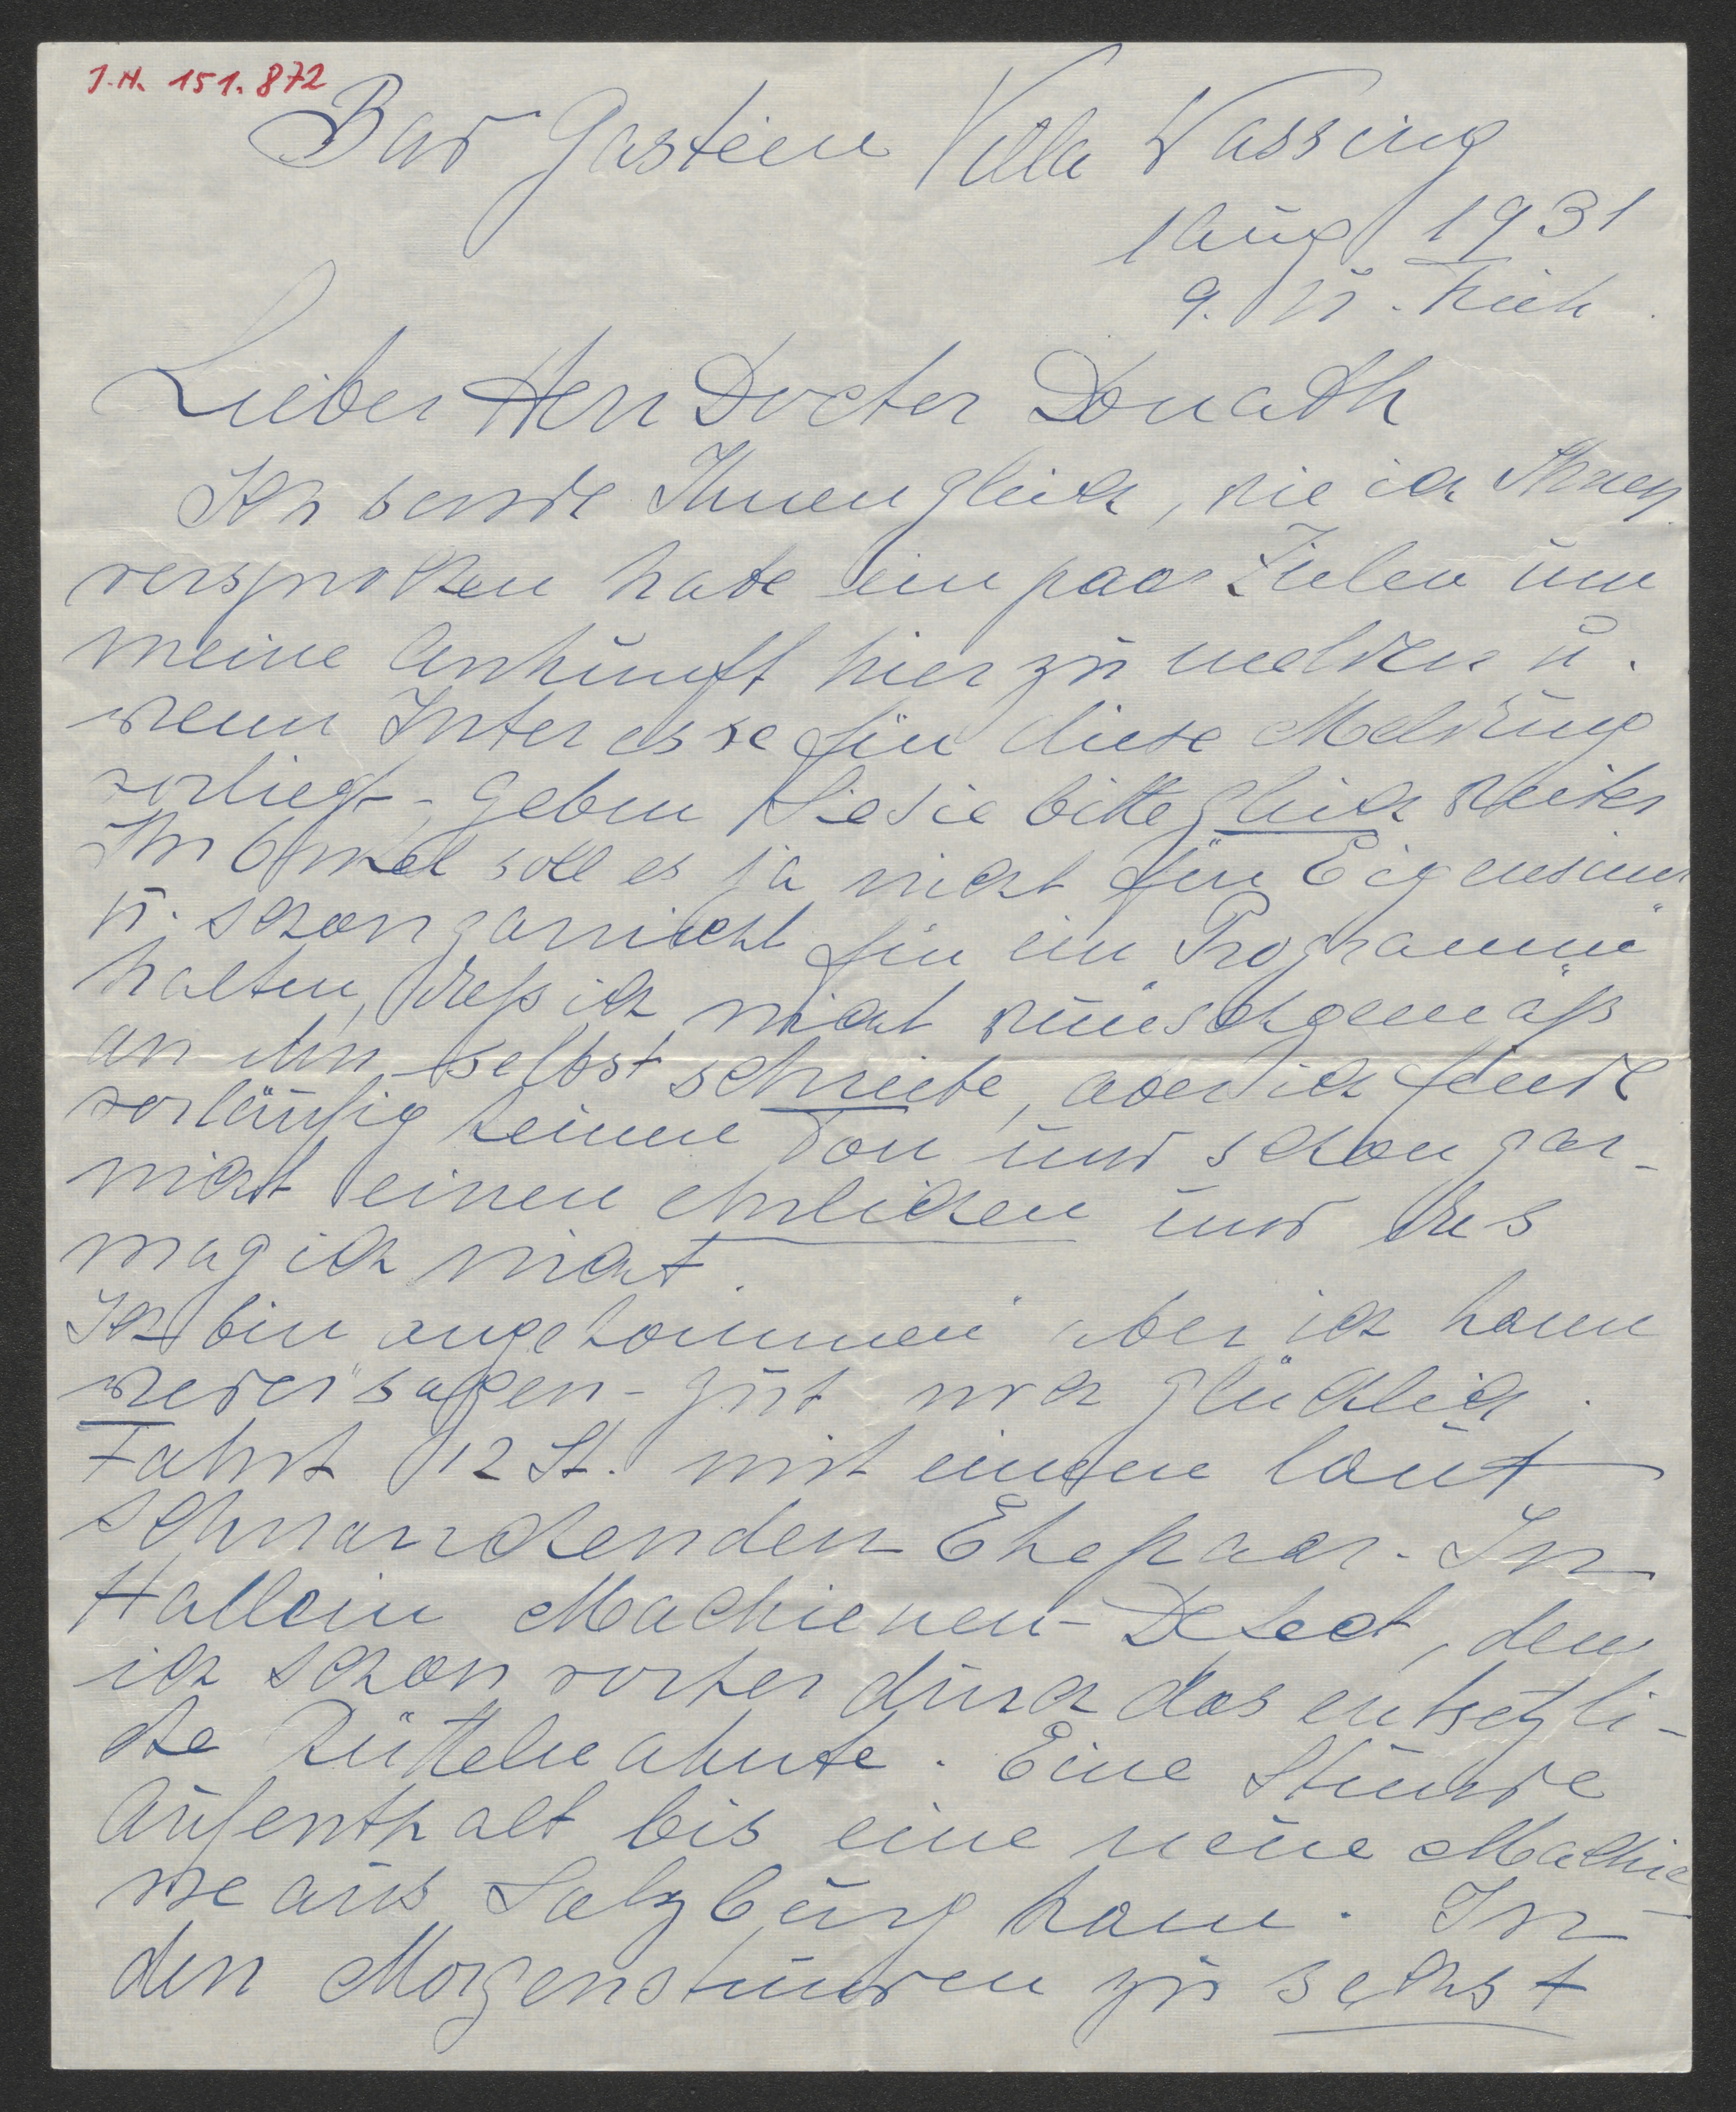 J.N. 151.872
Bad Gastein Villa Wassing
1 Aug 1931
9. U. früh.
Lieber Herr Docter Donath
Ich sende Ihnen gleich, wie ich Ihnen
versprochen habe ein paar Zeilen um
meine Ankunft hier zu melden u.
wenn Interesse für diese Meldung
vorliegt - geben Sie sie bitte gleich weiter
Ihr Onkel soll es ja nicht für Eigensinn
u. schon garnicht für ein „Programm“
halten, daß ich nicht wunschgemäß
an ihn selbst schreibe, aber ich finde
vorläufig keinen Ton und schon gar-
nicht einen ehrlichen und das
mag ich nicht.
Ich bin angekommen aber ich kann
weder sagen - gut noch glücklich.
Fahrt 12 St. mit einem laut
schnarchenden Ehepaar. In
Hallein Machienen-Defect, den
ich schon vorher durch das entsetzli-
che Rütteln ahnte. Eine Stunde
Aufenthalt bis eine neue Machie-
ne aus Salzburg kam. In
den Morgenstunden zu sechst